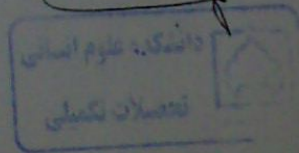 دانشکده علوم انسانی
تحصیلات تکمیلی